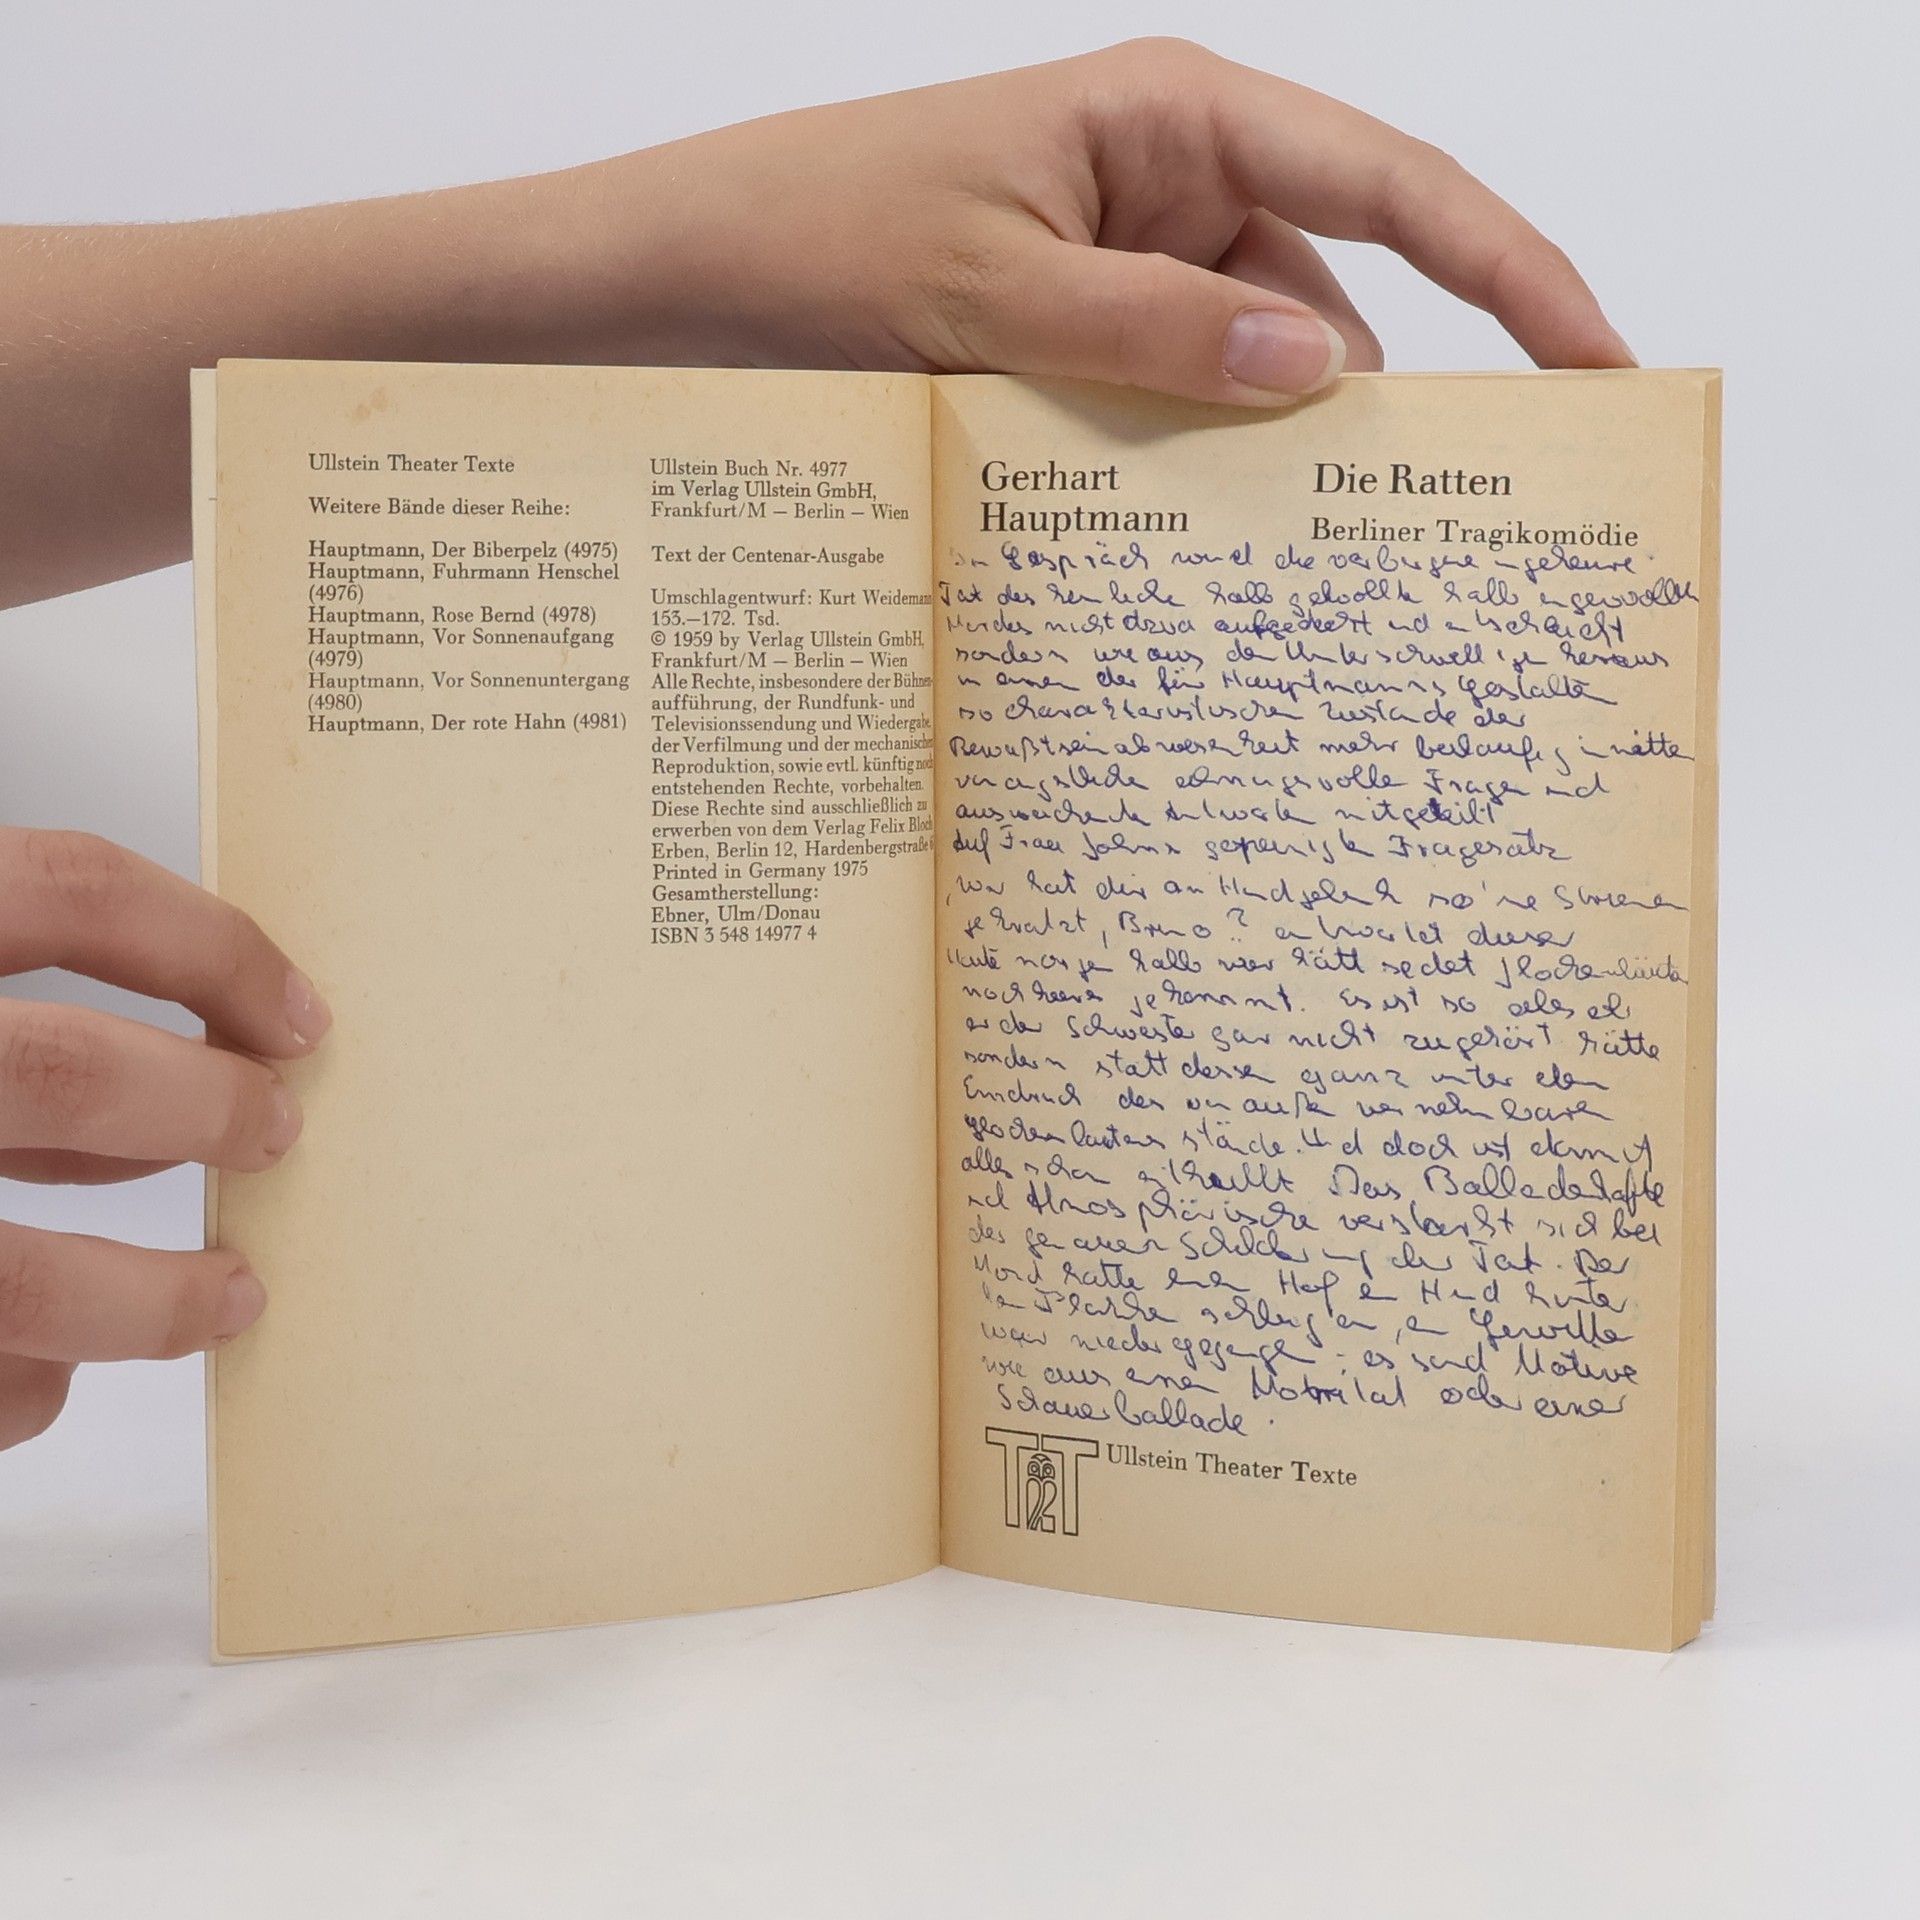 Ullstein Theater Texte
Weitere Bände dieser Reihe:
Hauptmann, Der Biberpelz (4975)
Hauptmann, Fuhrmann Henschel
(4976)
Hauptmann, Rose Bernd (4978)
Hauptmann, Vor Sonnenaufgang
(4979)
Hauptmann, Vor Sonnenuntergang
(4980)
Hauptmann, Der rote Hahn (4981)
Ullstein Buch Nr. 4977
im Verlag Ullstein GmbH,
Frankfurt/M — Berlin — Wien
Text der Centenar-Ausgabe
Umschlagentwurf: Kurt Weidemann
153.—172. Tsd.
© 1959 by Verlag Ullstein GmbH,
Frankfurt/M — Berlin — Wien
Alle Rechte, insbesondere der Bühnen-
aufführung, der Rundfunk- und
Televisionssendung und Wiedergabe,
der Verfilmung und der mechanischen
Reproduktion, sowie evtl. künftig noch
entstehenden Rechte, vorbehalten.
Diese Rechte sind ausschließlich zu
erwerben von dem Verlag Felix Bloch
Erben, Berlin 12, Hardenbergstraße 6
Printed in Germany 1975
Gesamtherstellung:
Ebner, Ulm/Donau
ISBN 3 548 14977 4
Gerhart
Hauptmann
Die Ratten
Berliner Tragikomödie
Im Gespräch wird die verborgene ungeheure
Tat des heimliche halb gewollte halb ungewollten
Mordes nicht etwa aufgedeckt und
sondern wie aus dem Unterschwelligen heraus
in einem der für Hauptmanns Gestalten
so charakteristischen Zustände der
Bewußtseinabwesenheit mehr beiläufig inmitten
von ängstliche ahnungsvolle Fragen und
ausweichende Antworten mitgeteilt
Auf Frau Johns gepeinigte Fragesatz
"Wer hat dir am Handgelenk so'ne Striemen
jekratzt, Bruno? antwortet dieser
Heute morgen halb vier hätt se det Glockenläuten
noch heeren jekonnt. Es ist so als ob
er der Schwester gar nicht zugehört hätte
sondern statt dessen ganz unter dem
Eindruck des von außen vernehmbaren
Glockenlautens stände. Und doch ist damit
alles schon enthüllt Das Balladenhafte
und Atmosphärische verstärkt sich bei
der genauen Schilderung der Tat. Der
Mond hatte einen Hof ein Hund hinter
den Planken schlug an, ein Gewitter
war niedergegangen; es sind Motive
wie aus einem Moritat oder einer
Schauerballade.
TT Ullstein Theater Texte